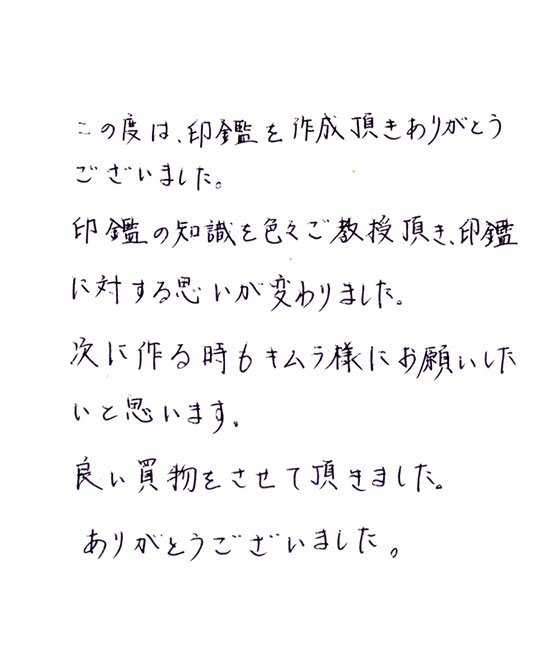 この度は、印鑑を作成頂きありがとう
ございました。
印鑑の知識を色々ご教授頂き、印鑑
に対する思いが変わりました。
次に作る時もキムラ様にお願いした
いと思います。
良い買物をさせて頂きました。
ありがとうございました。